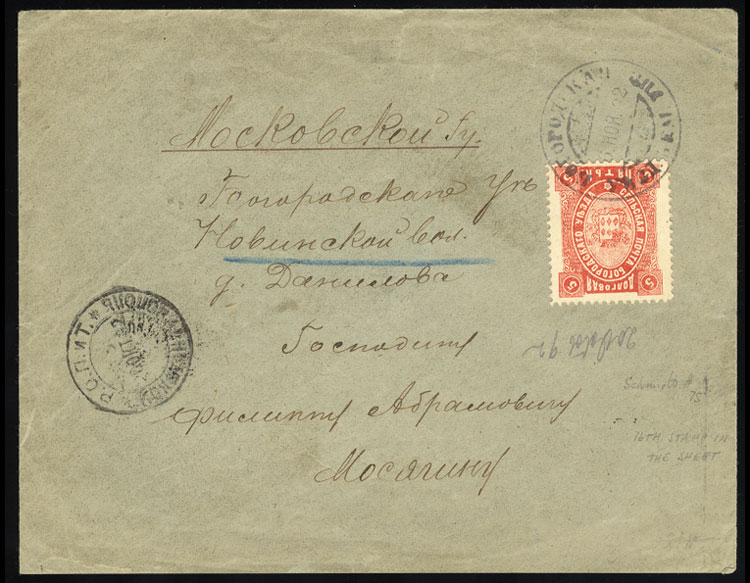 Московской Гу.
Богородскаго Уѣ
Новинской вол.
д. Данилова
Господину
Филиппу Абрамовичу
Мосягину
5 ПЯТЬ К. 5
СЕЛЬСКАЯ ПОЧТА БОГОРОДСКАГО УѢЗДА
5 ДОЛГОВАЯ 5
НОЯ. 92
Р.О.П.иТ.
Schmidt #
75
16TH STAMP IN
THE SHEET